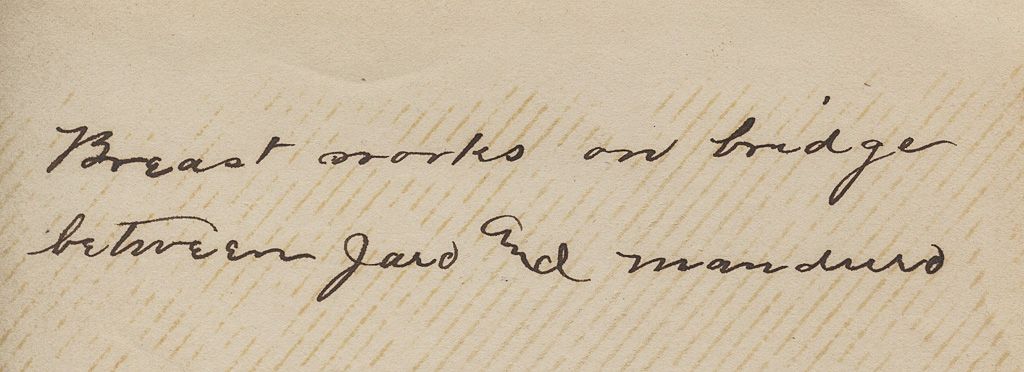 Breast works on bridge
between Jaro and mandurro